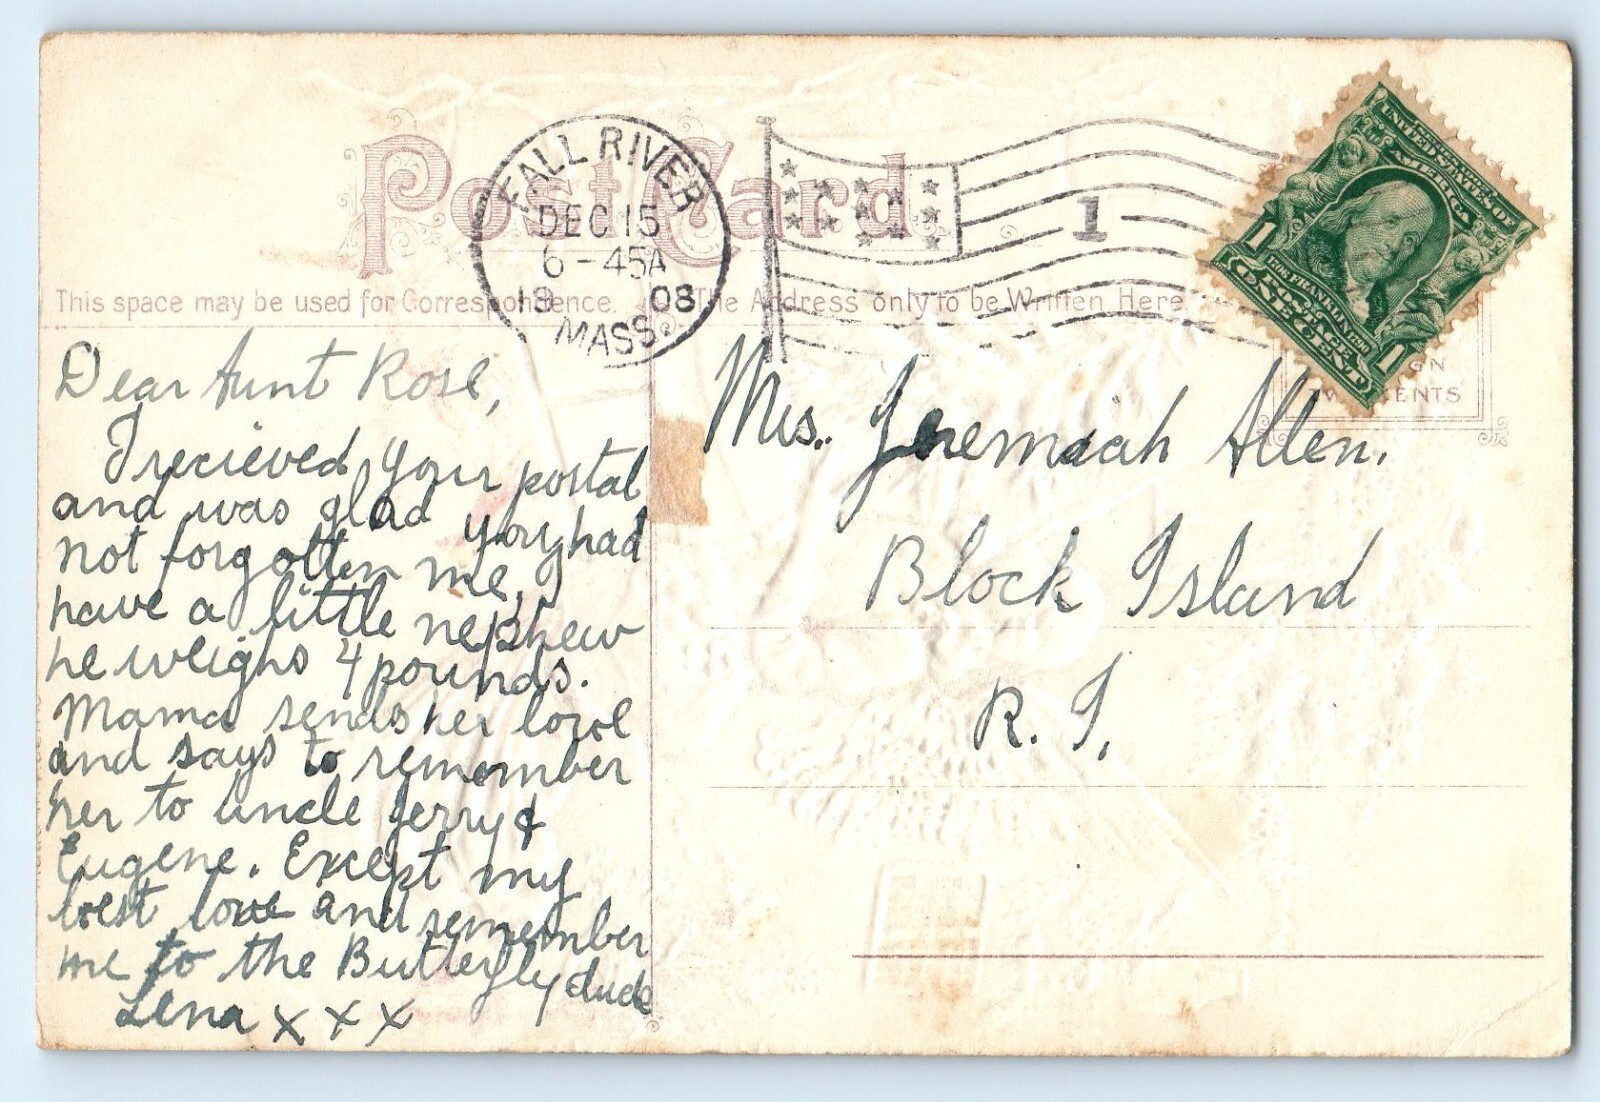 Post Card
FALL RIVER
DEC 15
6-45A
19 08
MASS.
1
UNITED STATES OF
AMERICA
1706 FRANKLIN 1790
POSTAGE
ONE CENT
1 1
This space may be used for Correspondence.
The Address only to be Written Here
GN
TWO CENTS
Dear Aunt Rose,
I recieved your postal
and was glad you had
not forgotten me. I
have a little nephew
he weighs 4 pounds.
Mama sends her love
and says to remember
her to uncle Jerry &
Eugene. Except my
best love and remember
me to the Butterfly duck
Lena x x x
Mrs. Jeremiah Allen.
Block Island
R. I.